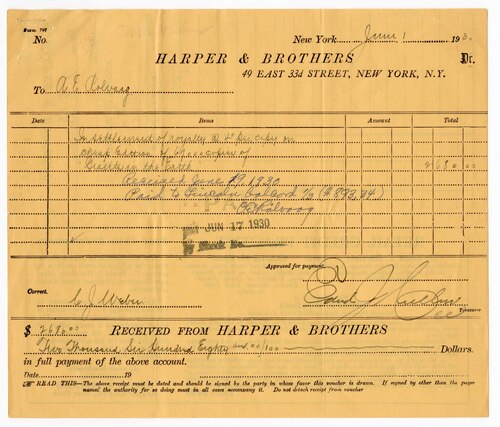 Form 702
No. New York June 1 1930
HARPER & BROTHERS Dr.
49 EAST 33d STREET, NEW YORK, N.Y.
To O. E. Rolvaag
Date Items Amount Total
In settlement of royalty @ 4¢ per copy on
cheap Edition of copies of
Giants in the Earth 2680 00
Received June 19, 1930
Paid to Lincoln Colcord 1/3 ($893.34)
O E Rolvaag
PAID
JUN 17 1930
By Check No.
Approved for payment,
Correct.
C. J. Weber
Treasurer
$ 2680 00 RECEIVED FROM HARPER & BROTHERS
Two Thousand Six Hundred Eighty and 00/100 Dollars.
in full payment of the above account.
Date 19
READ THIS—The above receipt must be dated and should be signed by the party in whose favor this voucher is drawn. If signed by other than the payee
named the authority for so doing must in all cases accompany it. Do not detach receipt from voucher